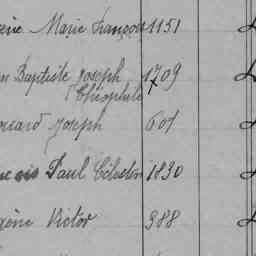 Marie François 1151
Baptiste Joseph 1709
Théophile
Joseph 601
Paul Célestin 1830
Victor 388